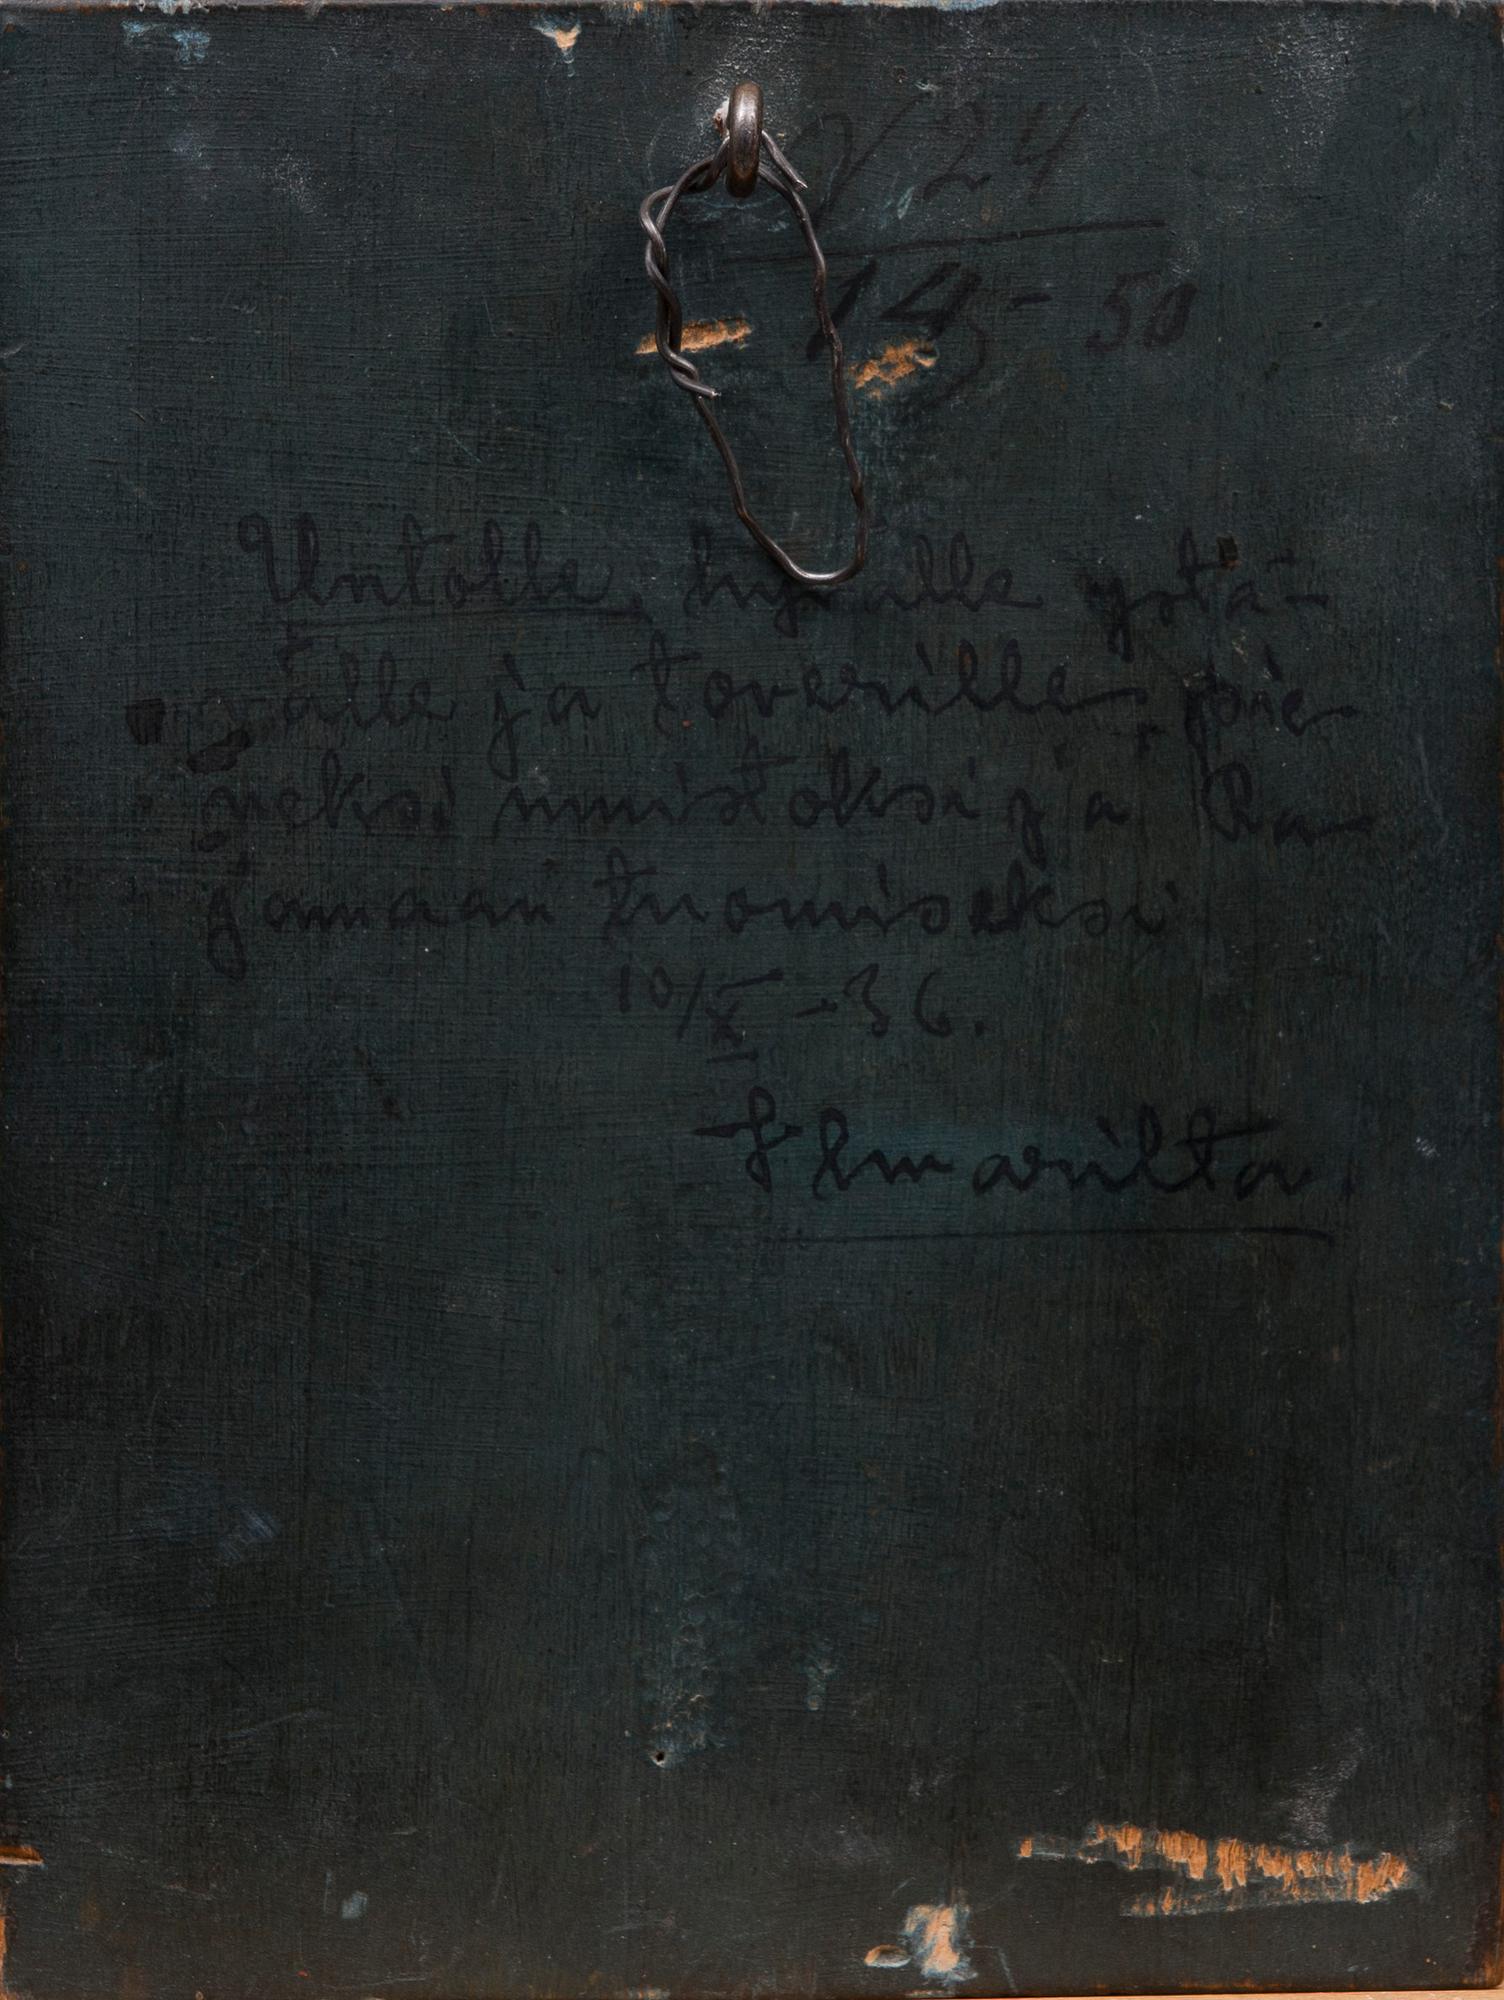 V 24
14 - 50
Untolle, hyvälle ystä-
välle ja toverille, pie-
neksi muistoksi ja Ra-
jamaan tuomiseksi
10/X - 36.
Ilmarilta.